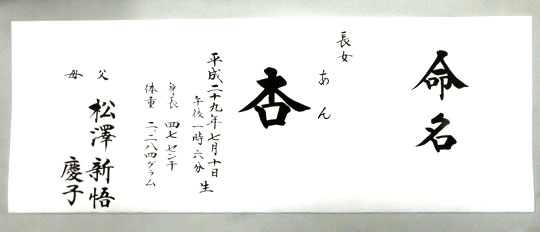 命名
長女
あん
杏
平成二十九年七月十日 生
午後一時六分
身長 四七センチ
体重 二、二八四グラム
父 松澤 新悟
母 慶子